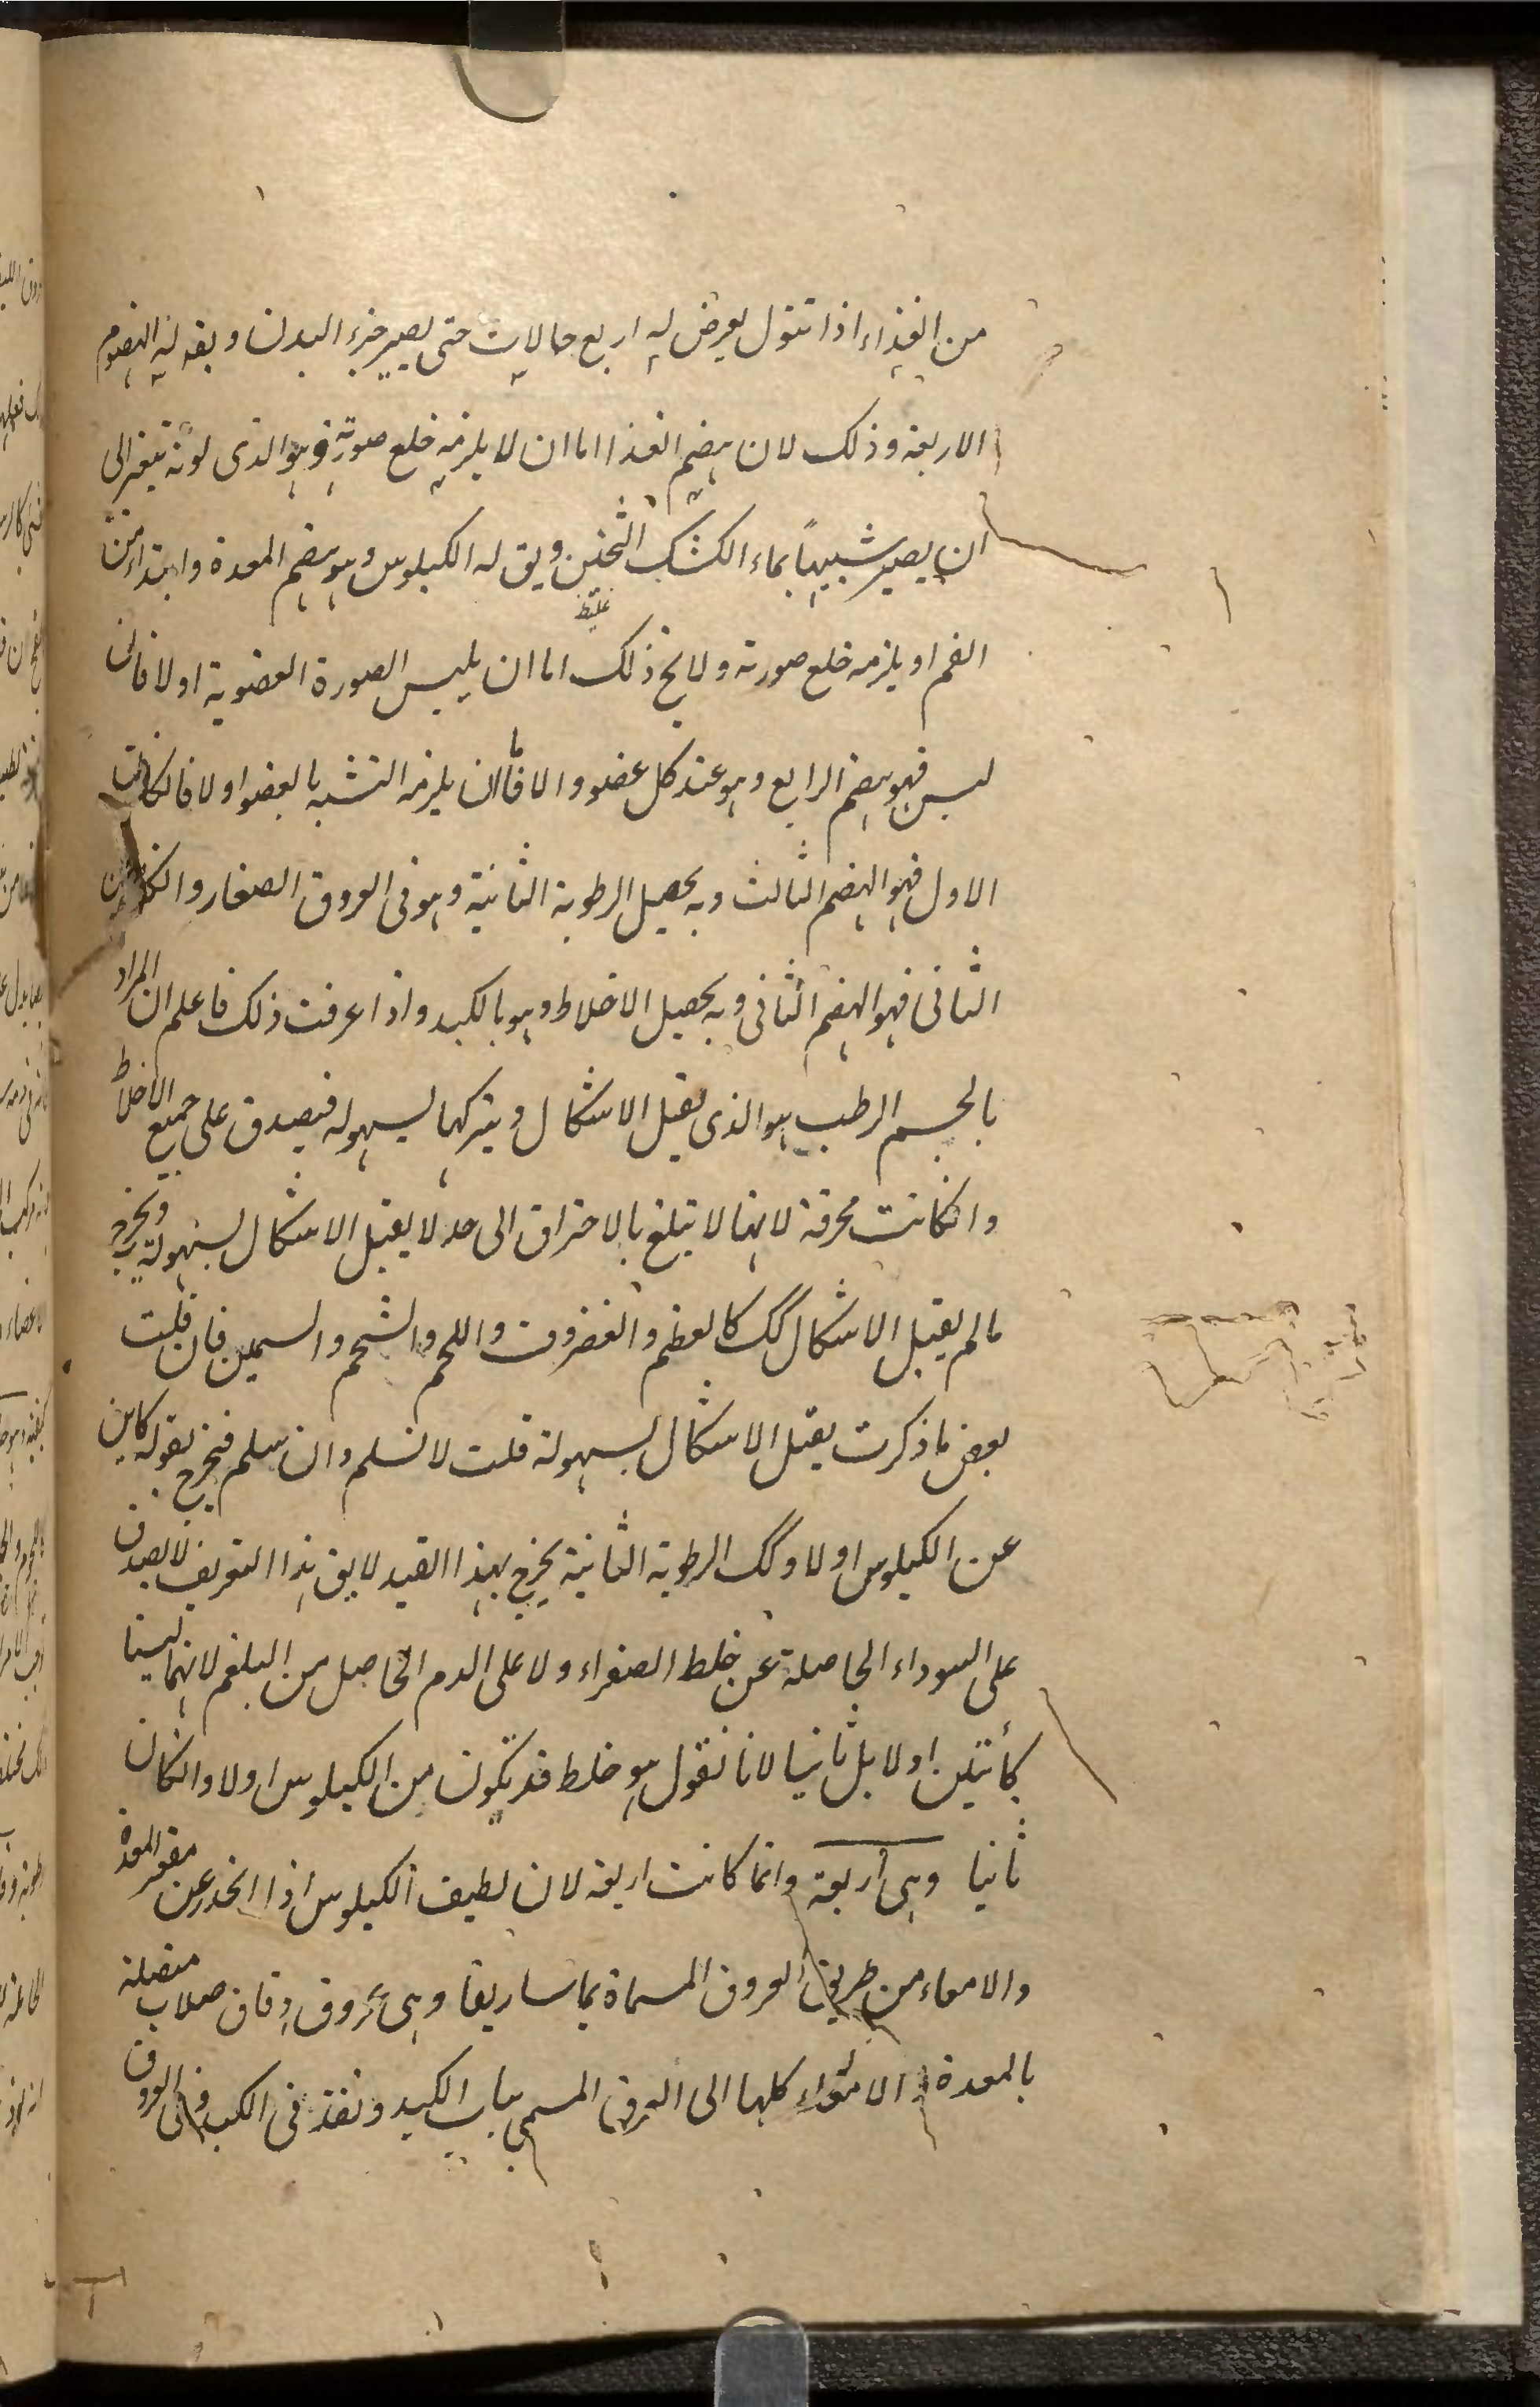 من الغذاء اذا تنول يعرض له اربع حالات حتى يصير جزء البدن ويق له الهضوم
الاربعة وذلك لان هضم الغذا اما ان لا يلزمه خلع صورته وهو الذى لونه يتغير الى
ان يصير شبيها بماء الكشك الثخين ويق له الكيلوس وهو هضم المعدة وابتداءه من
غليظ
الفم او يلزمه خلع صورته ولا يخ ذلك اما ان يلبس الصورة العضوية او لا فان
لبس فهو هضم الرابع وهو عند كل عضو والا فاما ان يلزمه التشبه بالعضو او لا فانكانت
الاول فهو الهضم الثالث وبه يحصيل الرطوبة الثانية وهو فى العروق الصغار وانكان
الثانى فهو الهضم الثانى وبه يحصيل الاخلاط وهو بالكبد واذا عرفت ذلك فاعلم ان المراد
بالجسم الرطب هو الذى يقبل الاشكال ويتركها بسهوله فيصدق على جميع الاخلاط
وانكانت محرقة لانها لا يبلغ بالاحتراق الى حد لا يقبل الاشكال بسهولة ويخرج به
مالم يقبل الاشكال كك كالعظم والغضروف واللحم والشحم والسمين فان قلت
بعض ما ذكرت يقبل الاشكال بسهولة قلت لا نسلم وان سلم فيخرج بقوله كاين
عن الكيلوس اولا وكك الرطوبة الثانية يخرج بهذا القيد لا يق هذا التعريف لا يصدق
على السوداء الحاصلة عن خلط الصفراء ولا على الدم الحاصل من البلغم لانهما ليسا
كأئنين اولا بل ثانيا لانا نقول هو خلط قد تكون من الكيلوس اولا وانكان
ثانيا وهى أربعة وانما كانت اربعة لان لطيف الكيلوس اذا انحدر عن مقعر المعدة
والامعاء من طريق العروق المسماة بماساريقا وهى عروق دقاق صلاب متصلة
بالمعدة والامعاء كلها الى العرق المسمى بباب الكبد ونفذ فى الكبد فى العروق